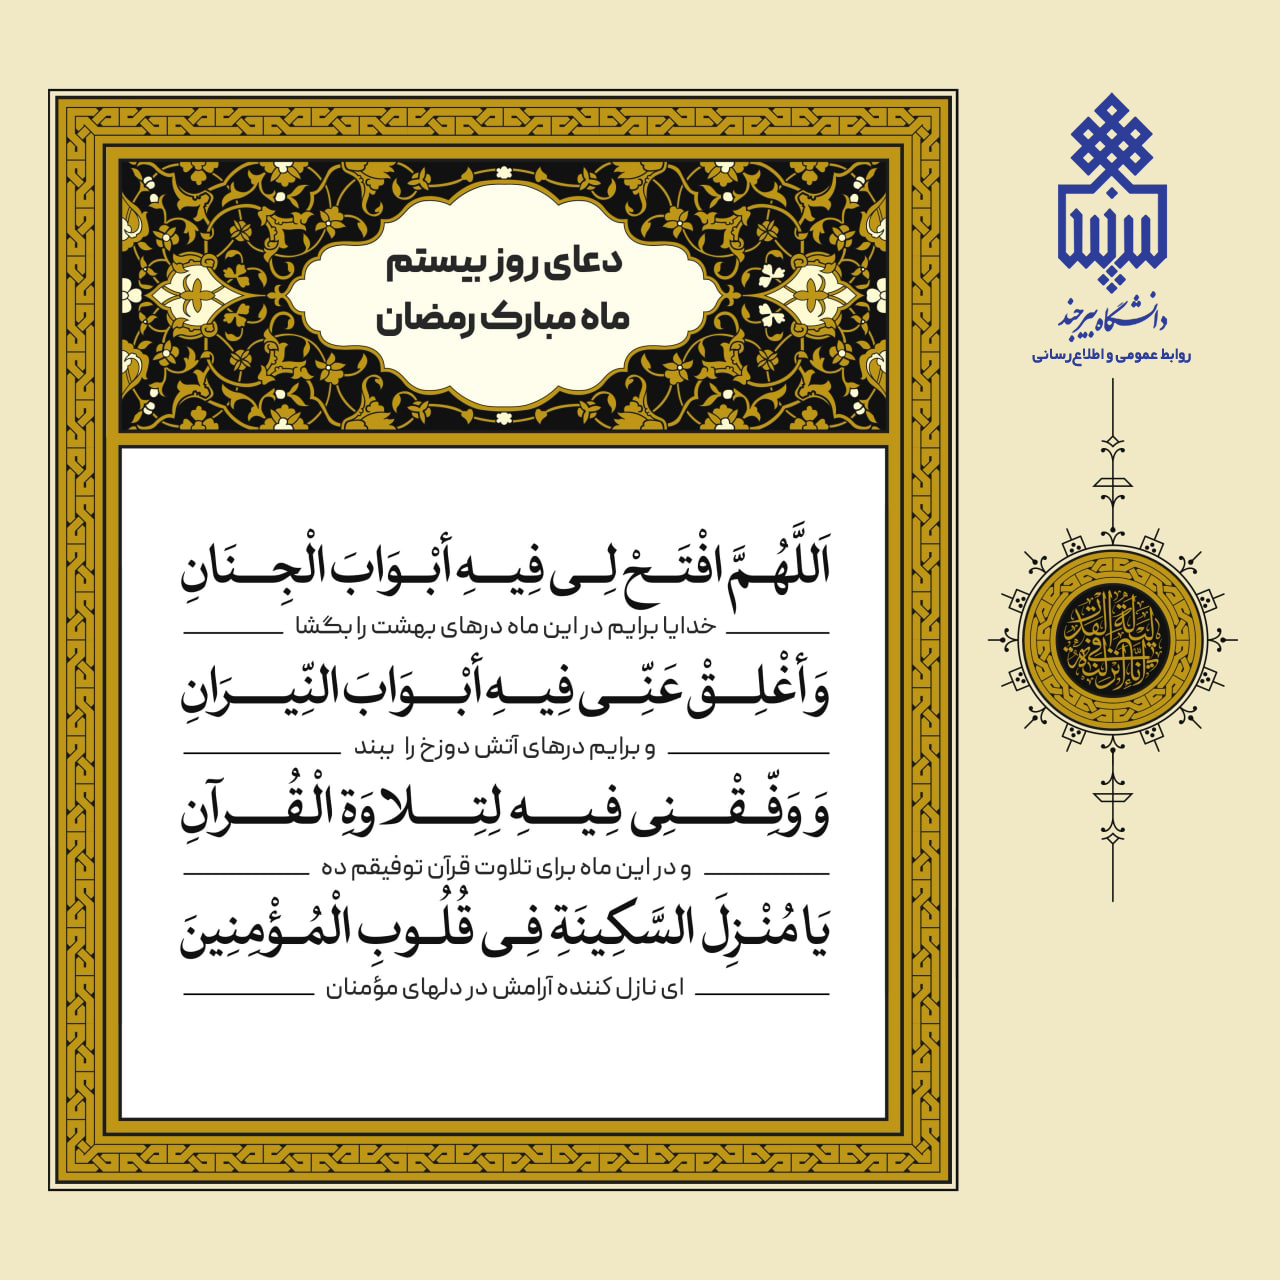 دعای روز بیستم
ماه مبارک رمضان
اَللَّهُمَّ افْتَحْ لِی فِیهِ أبْوَابَ الْجِنَانِ
خدایا برایم در این ماه درهای بهشت را بگشا
وَ أغْلِقْ عَنِّی فِیهِ أبْوَابَ النِّیرَانِ
و برایم درهای آتش دوزخ را ببند
وَ وَفِّقْنِی فِیهِ لِتِلاوَةِ الْقُرآنِ
و در این ماه برای تلاوت قرآن توفیقم ده
یَا مُنْزِلَ السَّکِینَةِ فِی قُلُوبِ الْمُؤْمِنِینَ
ای نازل کننده آرامش در دلهای مؤمنان
دانشگاه بیرجند
روابط عمومی و اطلاع‌رسانی
إنا أنزلناه فی
لیلة القدر